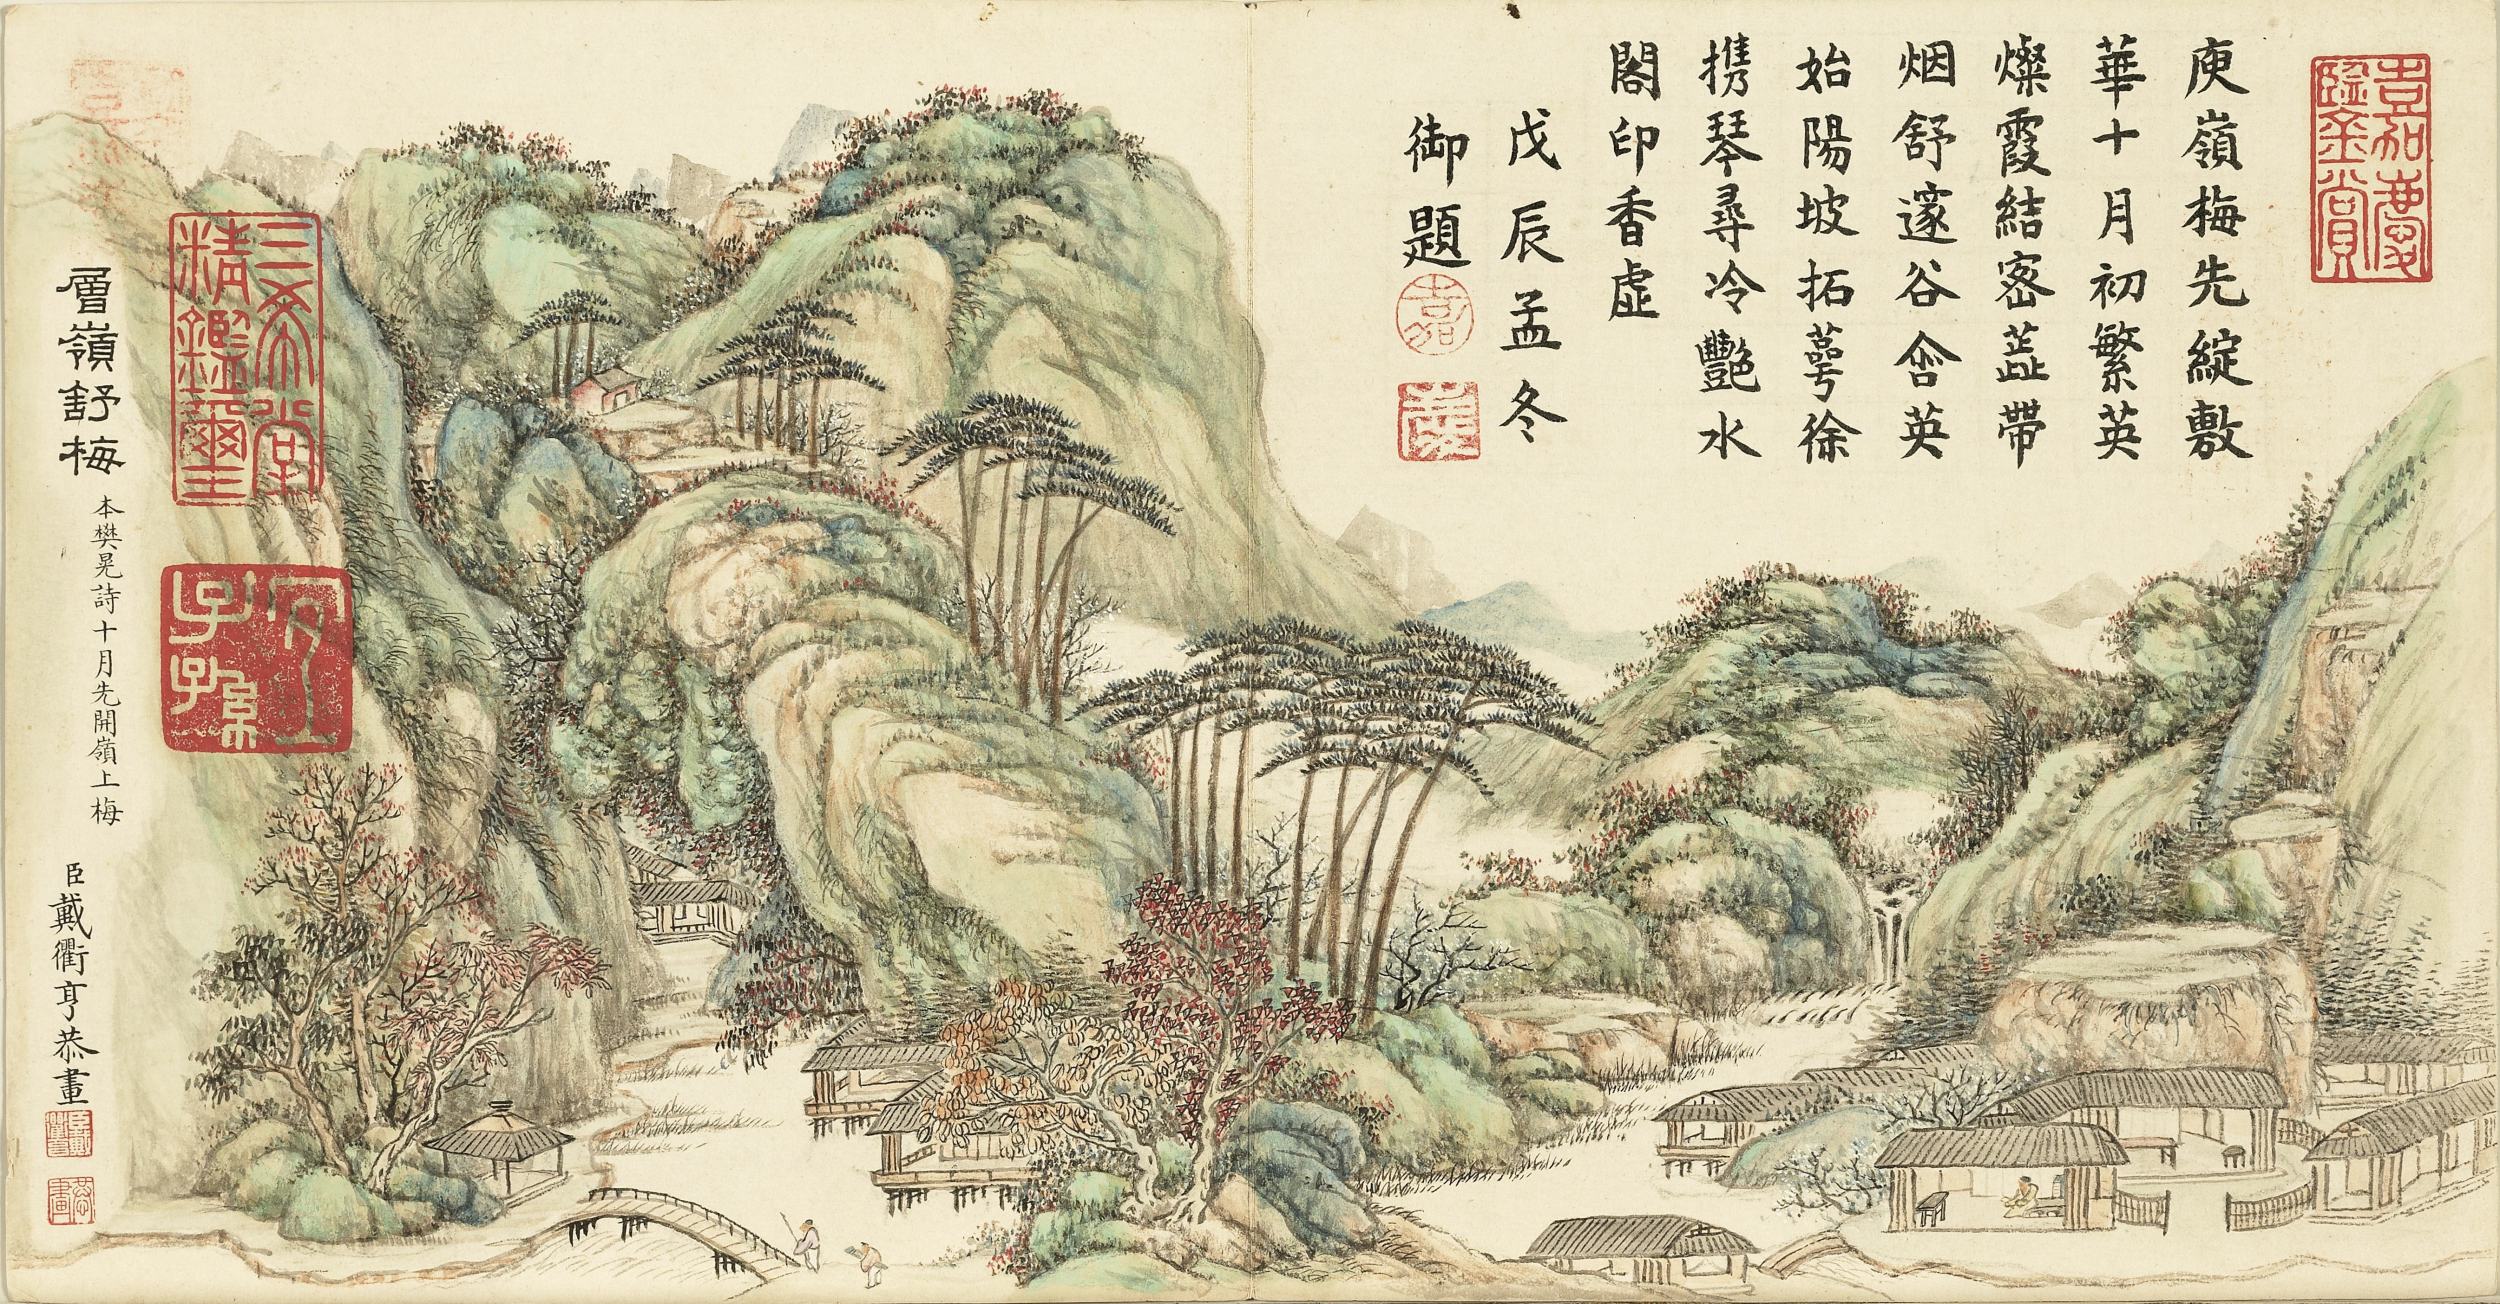 嘉慶鑒賞
庾嶺梅先綻敷
華十月初繁英
燦霞結密蕋帶
烟舒邃谷含英
始陽坡拓萼徐
携琴尋冷豔水
閣印香虛
戊辰孟冬
御題
嘉
三希堂
精鑑璽
宜
子孫
層嶺舒梅
本樊晃詩十月先開嶺上梅
臣戴衢亨恭畫
恭
畫